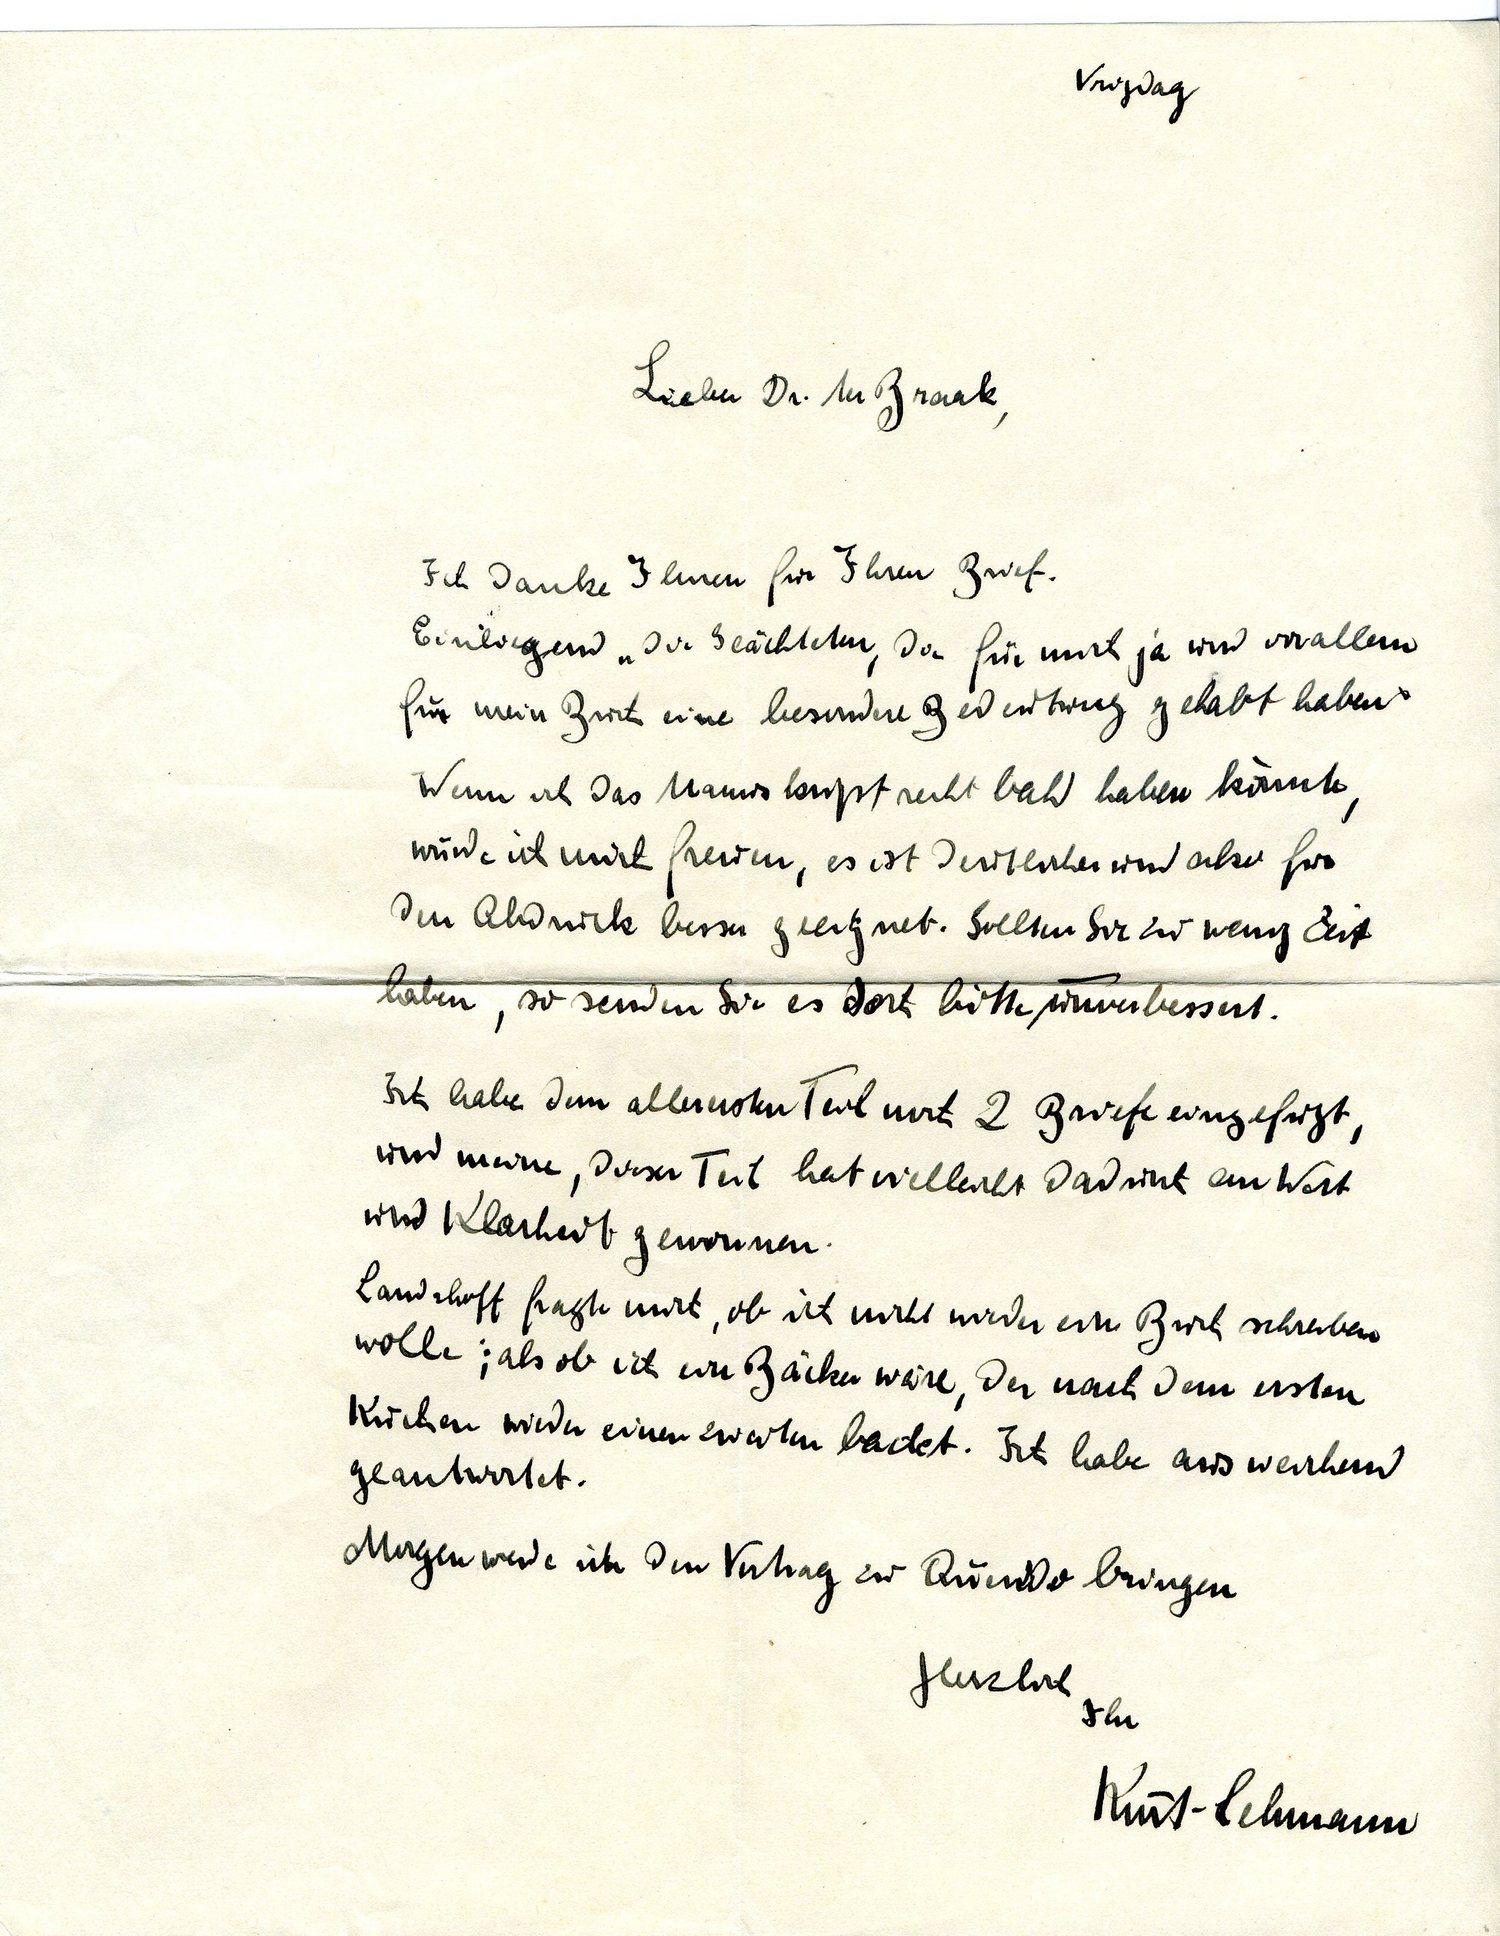 Vrijdag
Lieber Dr. ter Braak,
Ich danke Ihnen für Ihren Brief.
Einliegend „die Geächteten, die für mich ja und vorallem
für mein Buch eine besondere Bedeutung gehabt haben.
Wenn ich das Manuskript recht bald haben könnte,
würde ich mich freuen, es ist deutlicher und also für
den Abdruck besser geeignet. Sollten Sie zu wenig Zeit
haben, so senden Sie es doch bitte unverbessert.
Ich habe dem allerersten Teil noch 2 Briefe eingefügt,
und meine, dieser Teil hat vielleicht dadurch an Wert
und Klarheit gewonnen.
Landshoff fragte mich, ob ich nicht wieder ein Buch schreiben
wolle; als ob ich ein Bäcker wäre, der nach dem ersten
Kuchen wieder einen zweiten backt. Ich habe ausweichend
geantwortet.
Morgen werde ich den Vertrag zu Querido bringen
Herzlich
Ihr
Kurt-Lehmann